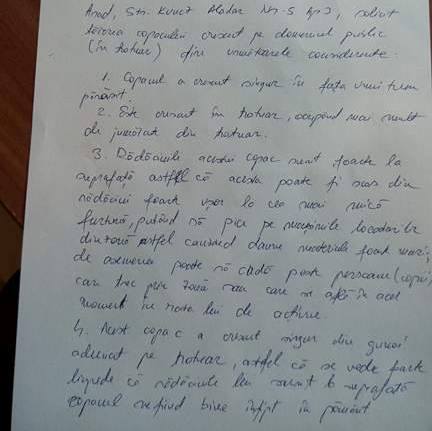 Arad, Str. Kuncz Aladar Nr. 5 Ap 3, solicit
tăierea copacului crescut pe domeniul public
(în trotuar) din următoarele considerente.
1. Copacul a crescut singur în fața unui teren
părăsit.
2. Este crescut în trotuar, ocupând mai mult
de jumătate din trotuar.
3. Rădăcinile acestui copac sunt foarte la
suprafață astfel că acesta poate fi scos din
rădăcini foarte ușor la cea mai mică
furtună, putând să pice pe mașinile locatarilor
din zonă astfel cauzând daune materiale foarte mari,
de asemenea poate să cadă peste persoane (copii)
care trec prin zonă sau care se află în acel
moment în raza lui de acțiune.
4. Acest copac a crescut singur din gunoi
adunat pe trotuar, astfel că se vede foarte
limpede că rădăcinile lui sunt la suprafață
copacul nefiind bine înfipt în pământ